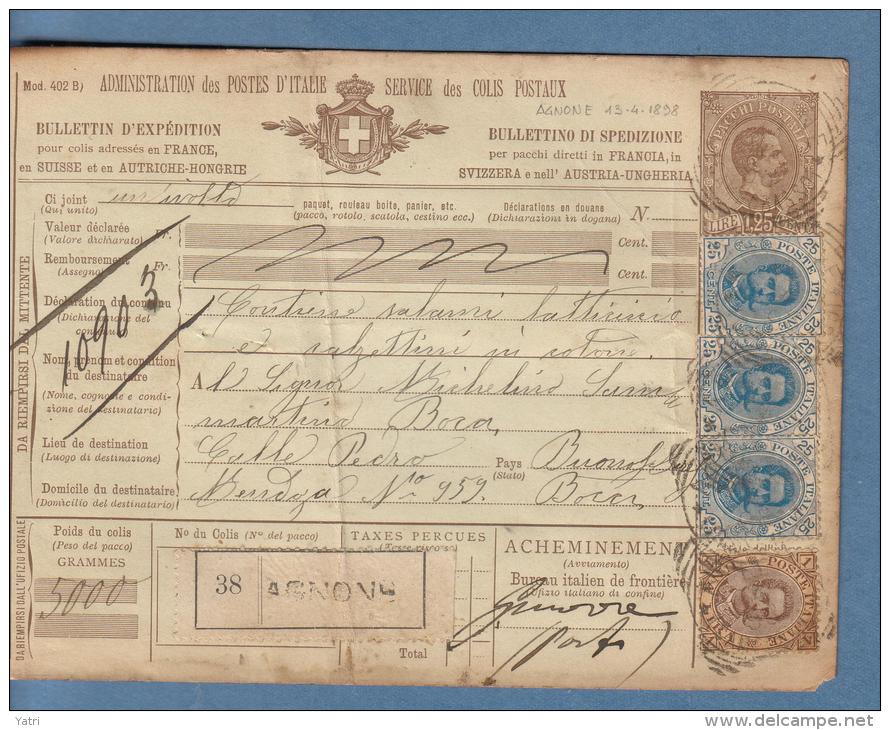 Mod. 402 B)
ADMINISTRATION des POSTES D'ITALIE SERVICE des COLIS POSTAUX
AGNONE 13-4-1898
BULLETTIN D'EXPÉDITION
pour colis adressés en FRANCE,
en SUISSE et en AUTRICHE-HONGRIE
BULLETTINO DI SPEDIZIONE
per pacchi diretti in FRANCIA, in
SVIZZERA e nell' AUSTRIA-UNGHERIA
PACCHI POSTALI
LIRE 1,25 CENTI
Ci joint
(Qui unito)
paquet, rouleau boite, panier, etc.
(pacco, rotolo, scatola, cestino ecc.)
Déclarations en douane
(Dichiarazioni in dogana)
N.
DA RIEMPIRSI DAL MITTENTE
Valeur déclarée
(Valore dichiarato) Fr.
Cent.
Remboursement
(Assegno) Fr.
Cent.
Déclaration du contenu
(Dichiarazione del
contenuto)
Contiene salami latticinio
e calzettini in cotone.
10963
Nom, prénom et condition
du destinataire
(Nome, cognome e condi-
zione del destinatario)
A l Signor Michelino Sam
martino Boca,
Lieu de destination
(Luogo di destinazione)
Calle Pedro
Pays
(Stato)
Domicile du destinataire
(Domicilio del destinatario)
Mendoza No 959.
Boca
25 POSTE ITALIANE 25
25 POSTE ITALIANE 25
25 POSTE ITALIANE 25
1 POSTE ITALIANE
DA RIEMPIRSI DALL'UFIZIO POSTALE
Poids du colis
(Peso del pacco)
GRAMMES
5000
No du Colis (No del pacco)
TAXES PERCUES
38 AGNONE
Total
ACHEMINEMENT
(Avviamento)
Bureau italien de frontière
(Ufizio italiano di confine)
Yatri
delcampe.net